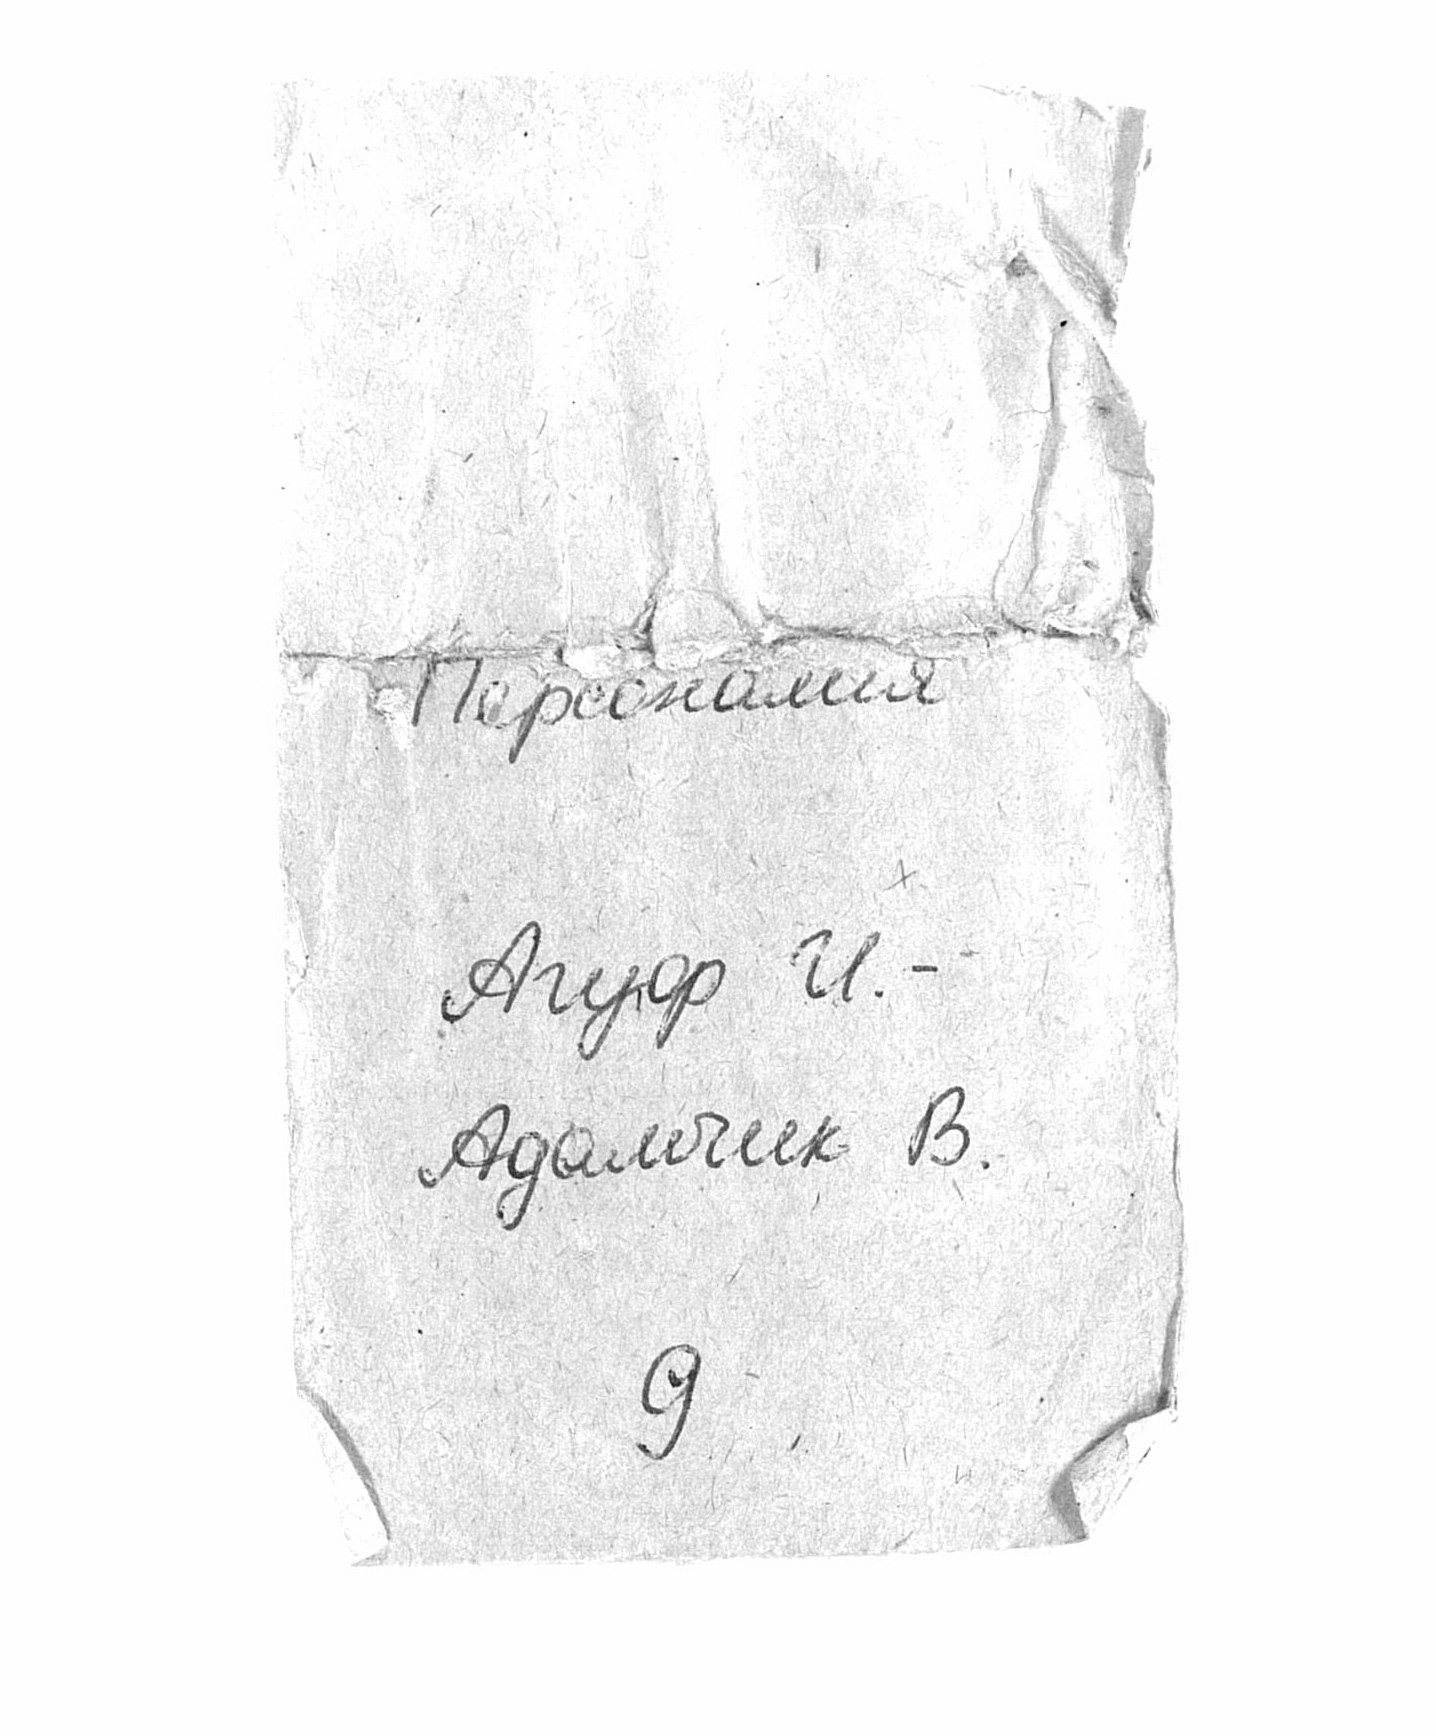 Персоналия
Агуф И. -
Адамчик В.
9